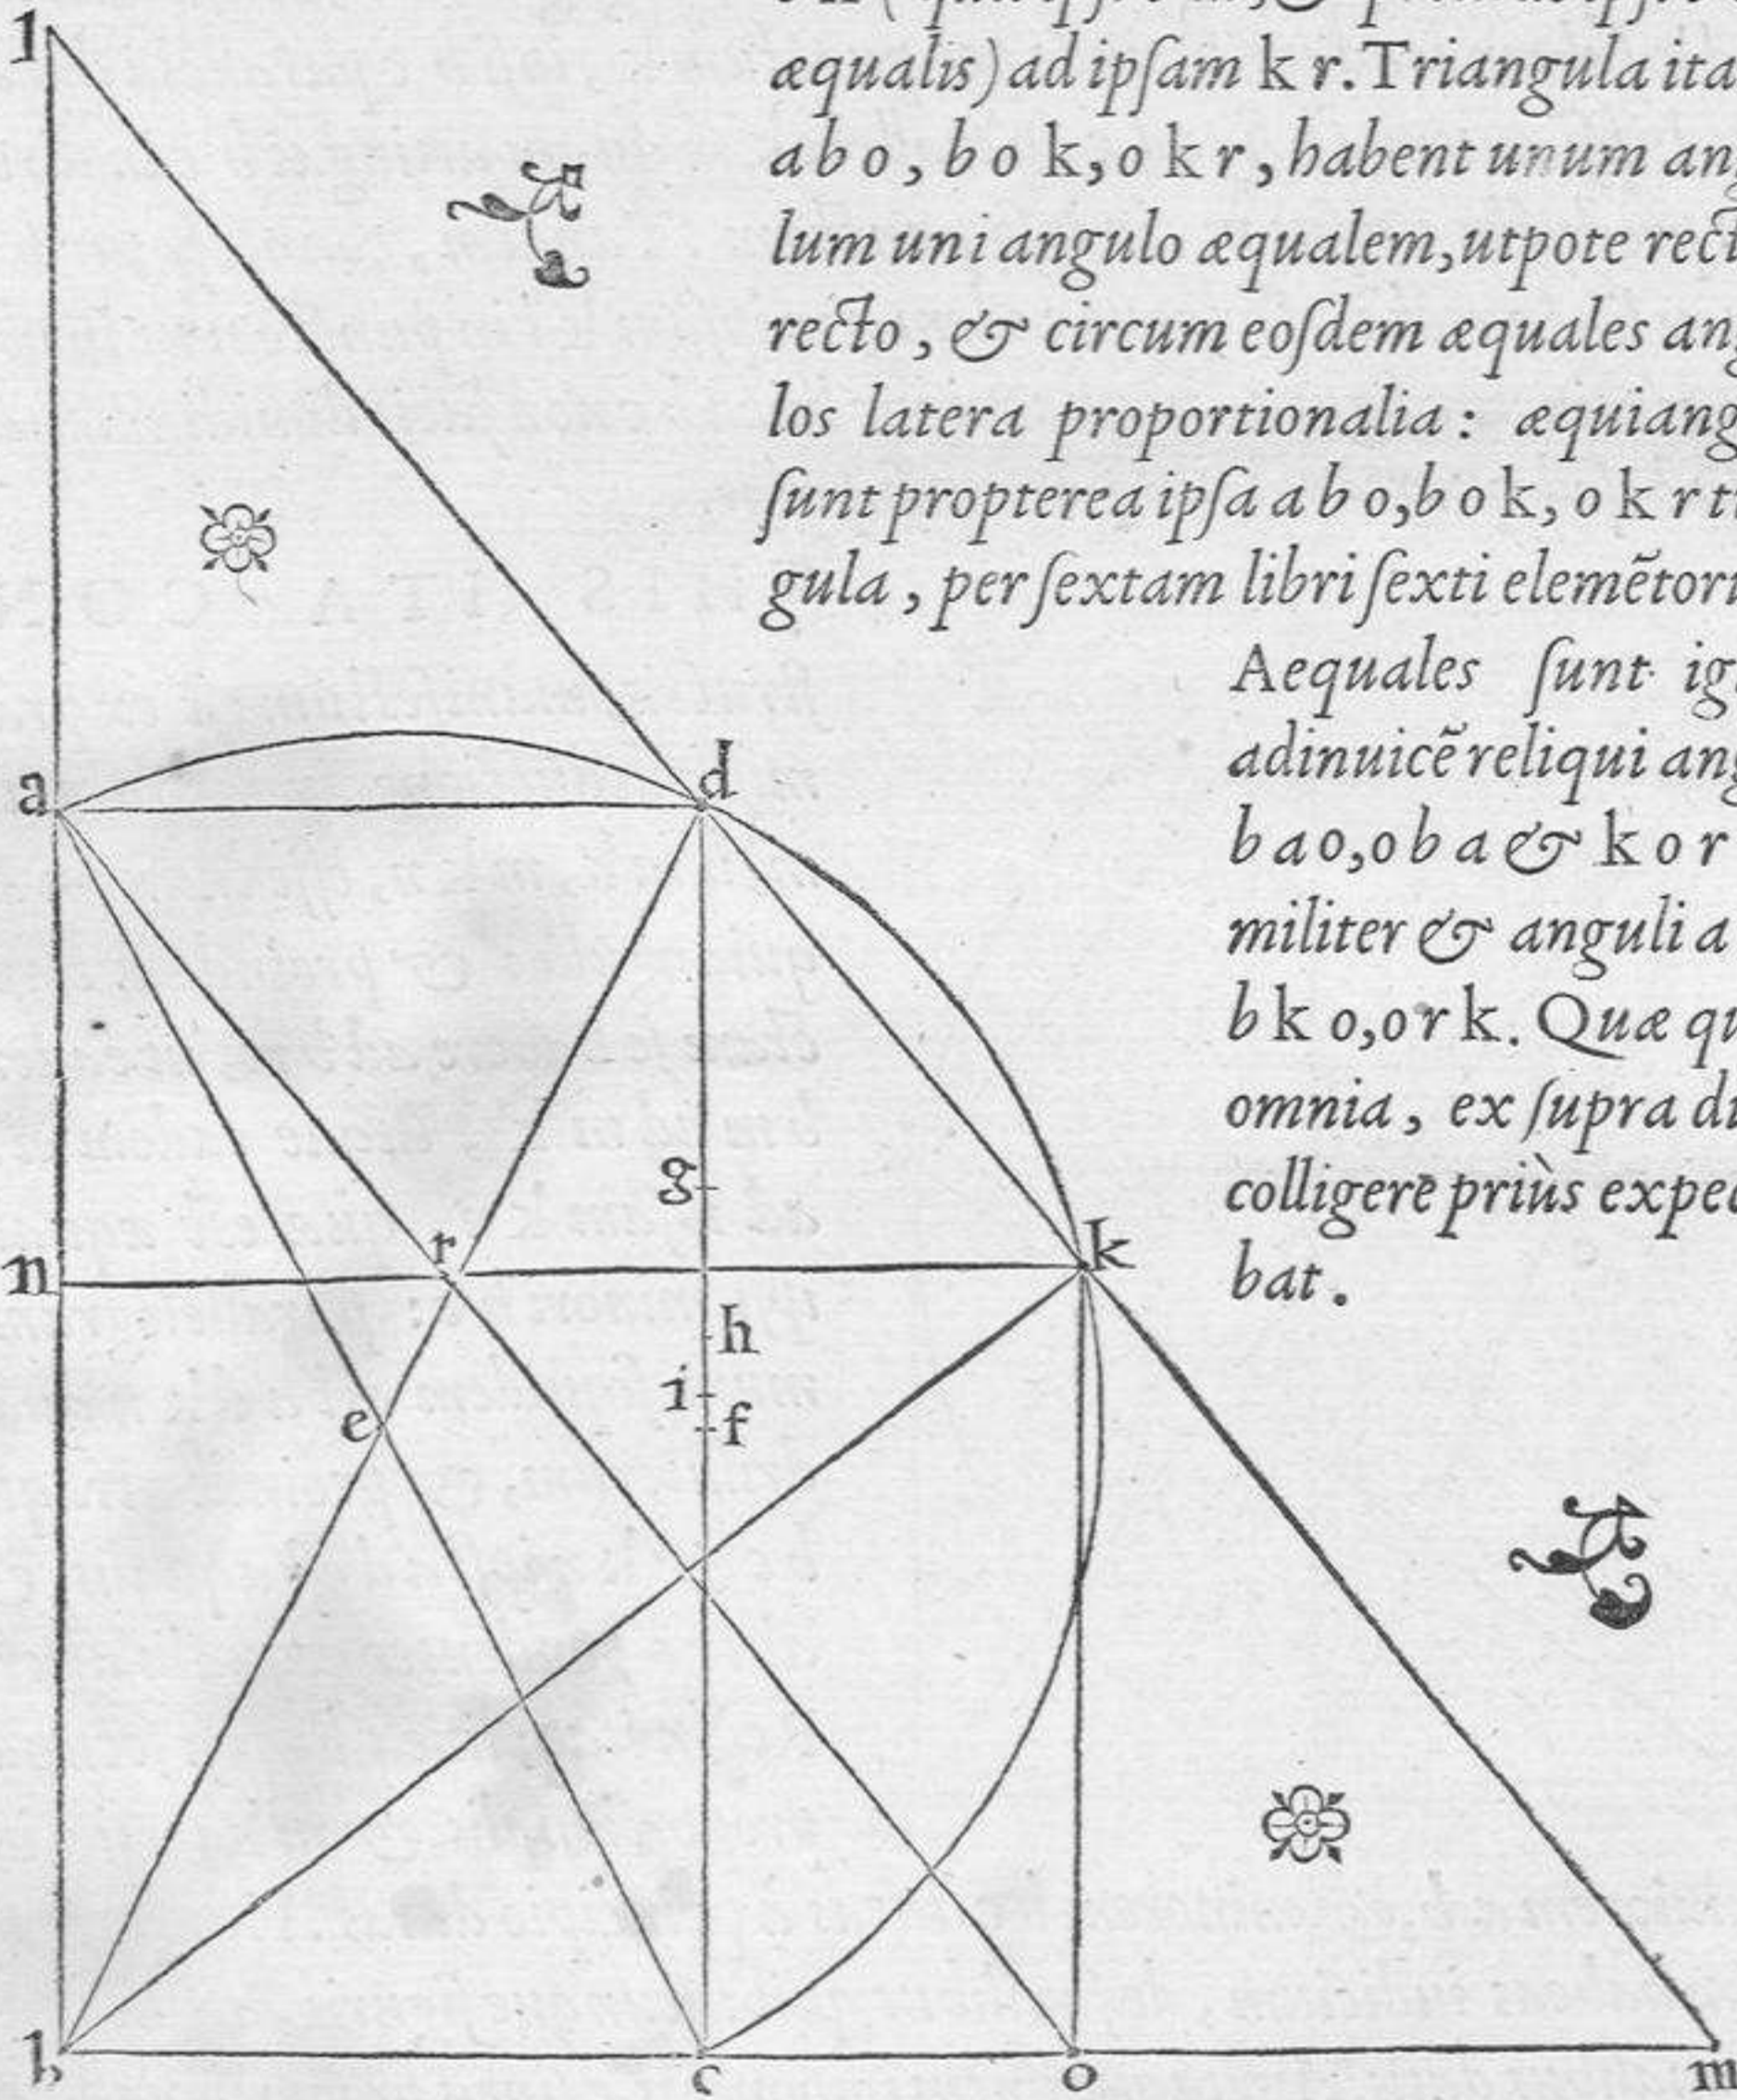 æqualis) ad ipſam k r. Triangula ita
a b o, b o k, o k r, habent unum ang
lum uni angulo æqualem, utpote rect
recto, & circum eoſdem æquales ang
los latera proportionalia: æquiang
ſunt propterea ipſa a b o, b o k, o k r tr
gula, per ſextam libri ſexti elemẽtoru
Aequales ſunt igi
adinuicẽ reliqui ang
b a o, o b a & k o r
militer & anguli a
b k o, o r k. Quæ qu
omnia, ex ſupra di
colligere priùs expec
bat.
l
a
d
g
r
n
k
h
i
f
e
b
c
o
m